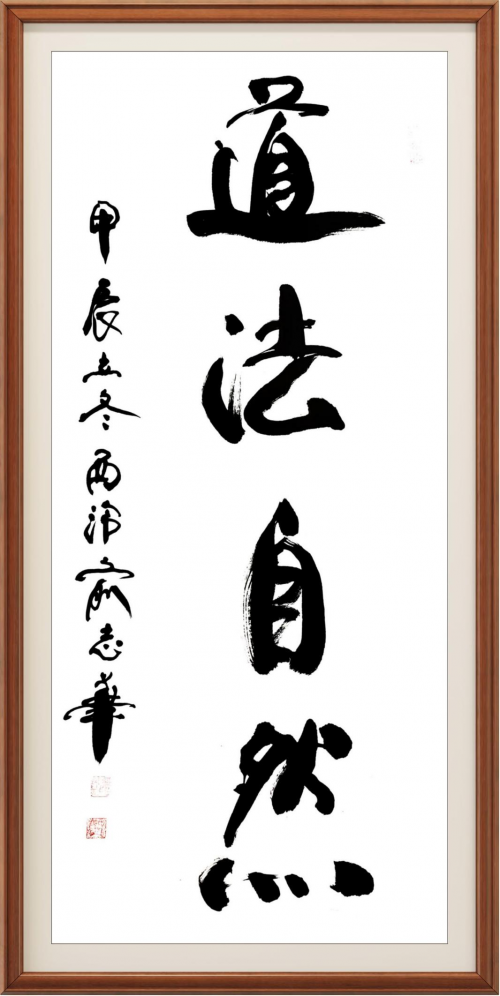 道法自然
甲辰立冬西沛俞志華